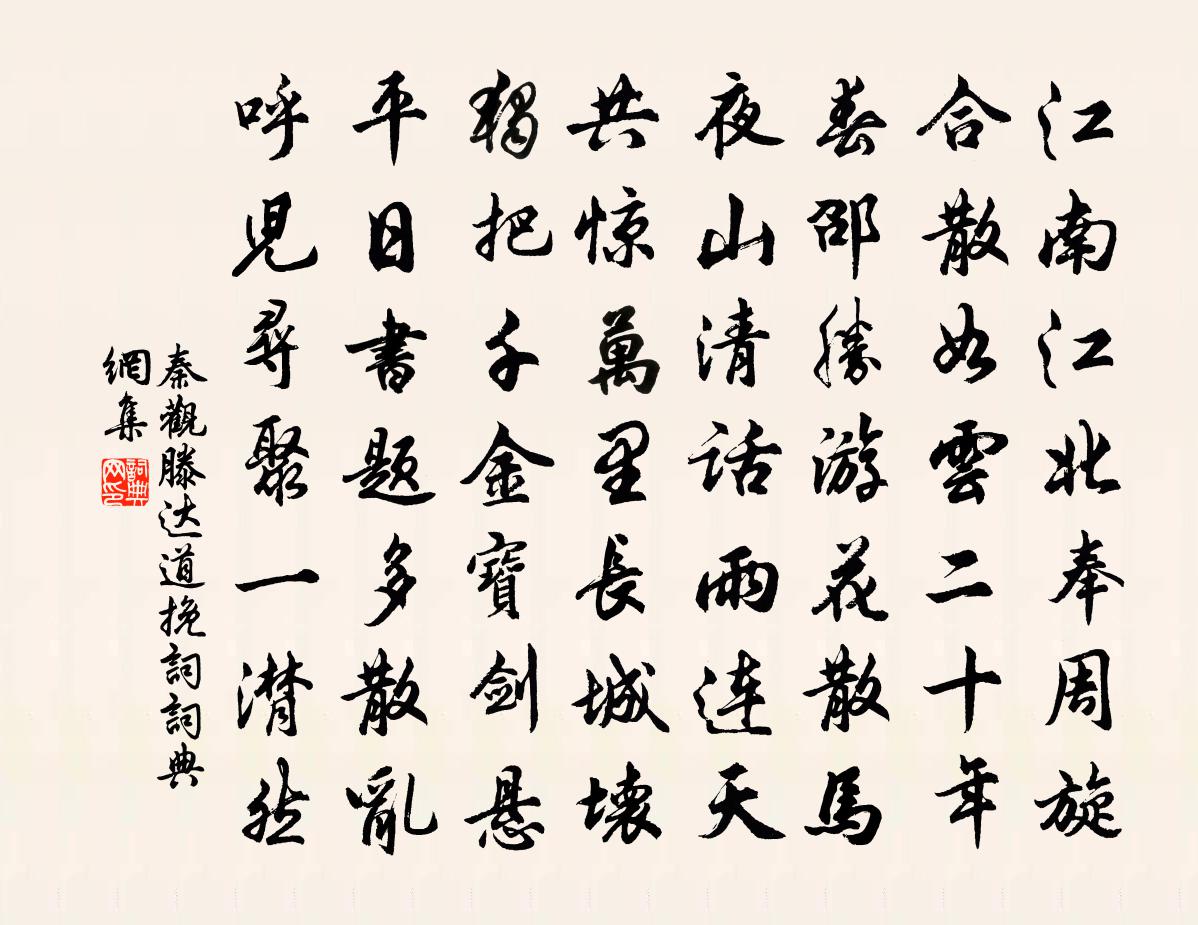 江南江北奉周旋
合散如雲二十年
春邵勝游花散馬
夜山清话雨连天
共惊萬里長城壞
獨把千金寶剑悬
平日書题多散亂
呼兒尋聚一潸然
秦觀滕达道挽詞詞典
網集
詞典
网印